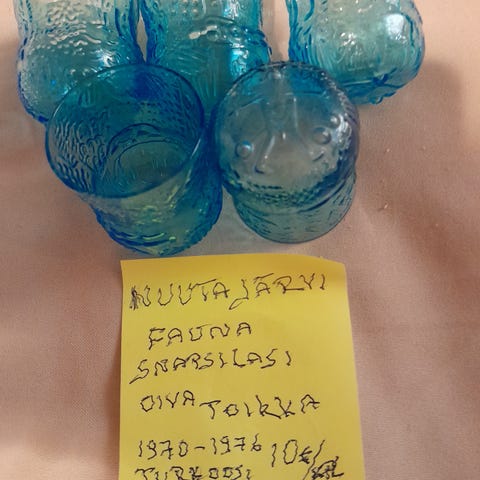 NUUTAJÄRVI
FAUNA
SNAPSILASI
OIVA TOIKKA
1970-1976 10€/
TURKOOSI /KPL